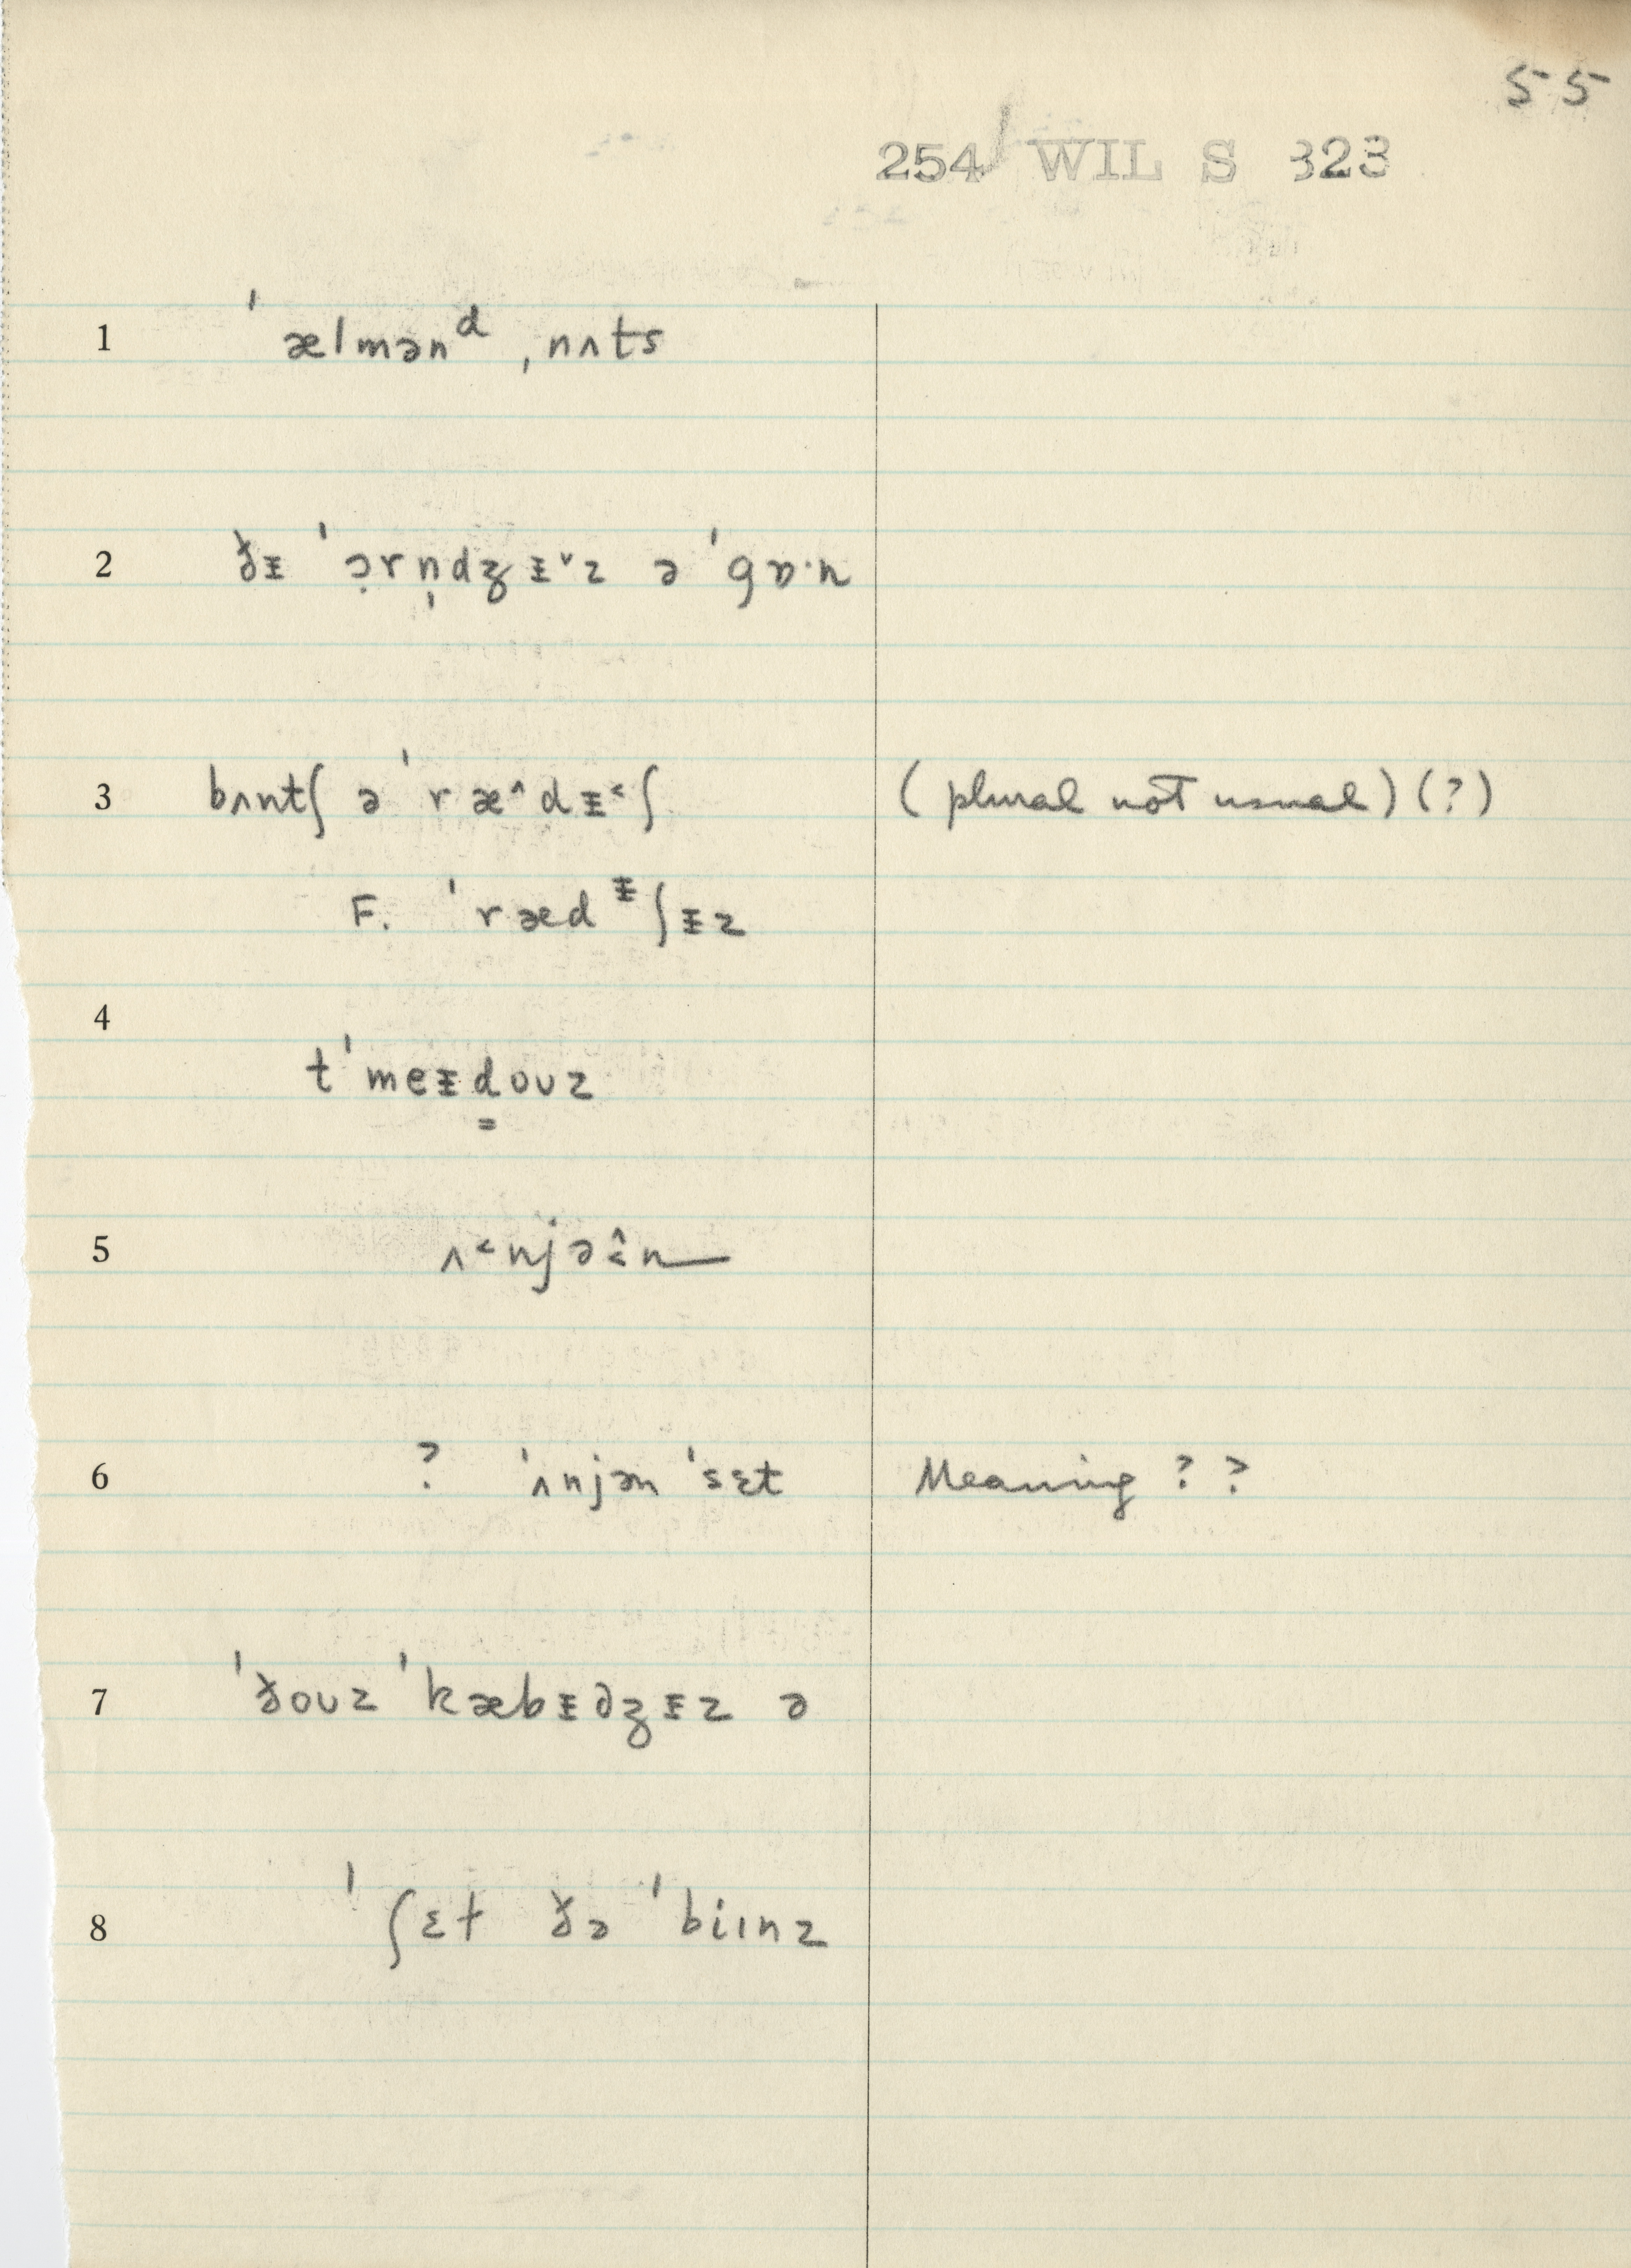 55
254 WIL S 323
1 ˈælmənᵈ ˌnʌts
2 ðᵻ ˈɔ̣rn̩dʒᵻ˅z ə ˈgɒ·n
3 bʌntʃ ə ˈræ^dᵻ˂ʃ (plural not usual) (?)
F. ˈrædᵻʃᵻz
4 tˈmeᵻd̳ouz
5 ʌ˂njə˂̂n—
6 ? ˈʌnjən ˈsɛt Meaning ? ?
7 ˈðouz ˈkæbᵻdʒᵻz ə
8 ˈʃɛt ðə ˈbiɪnz